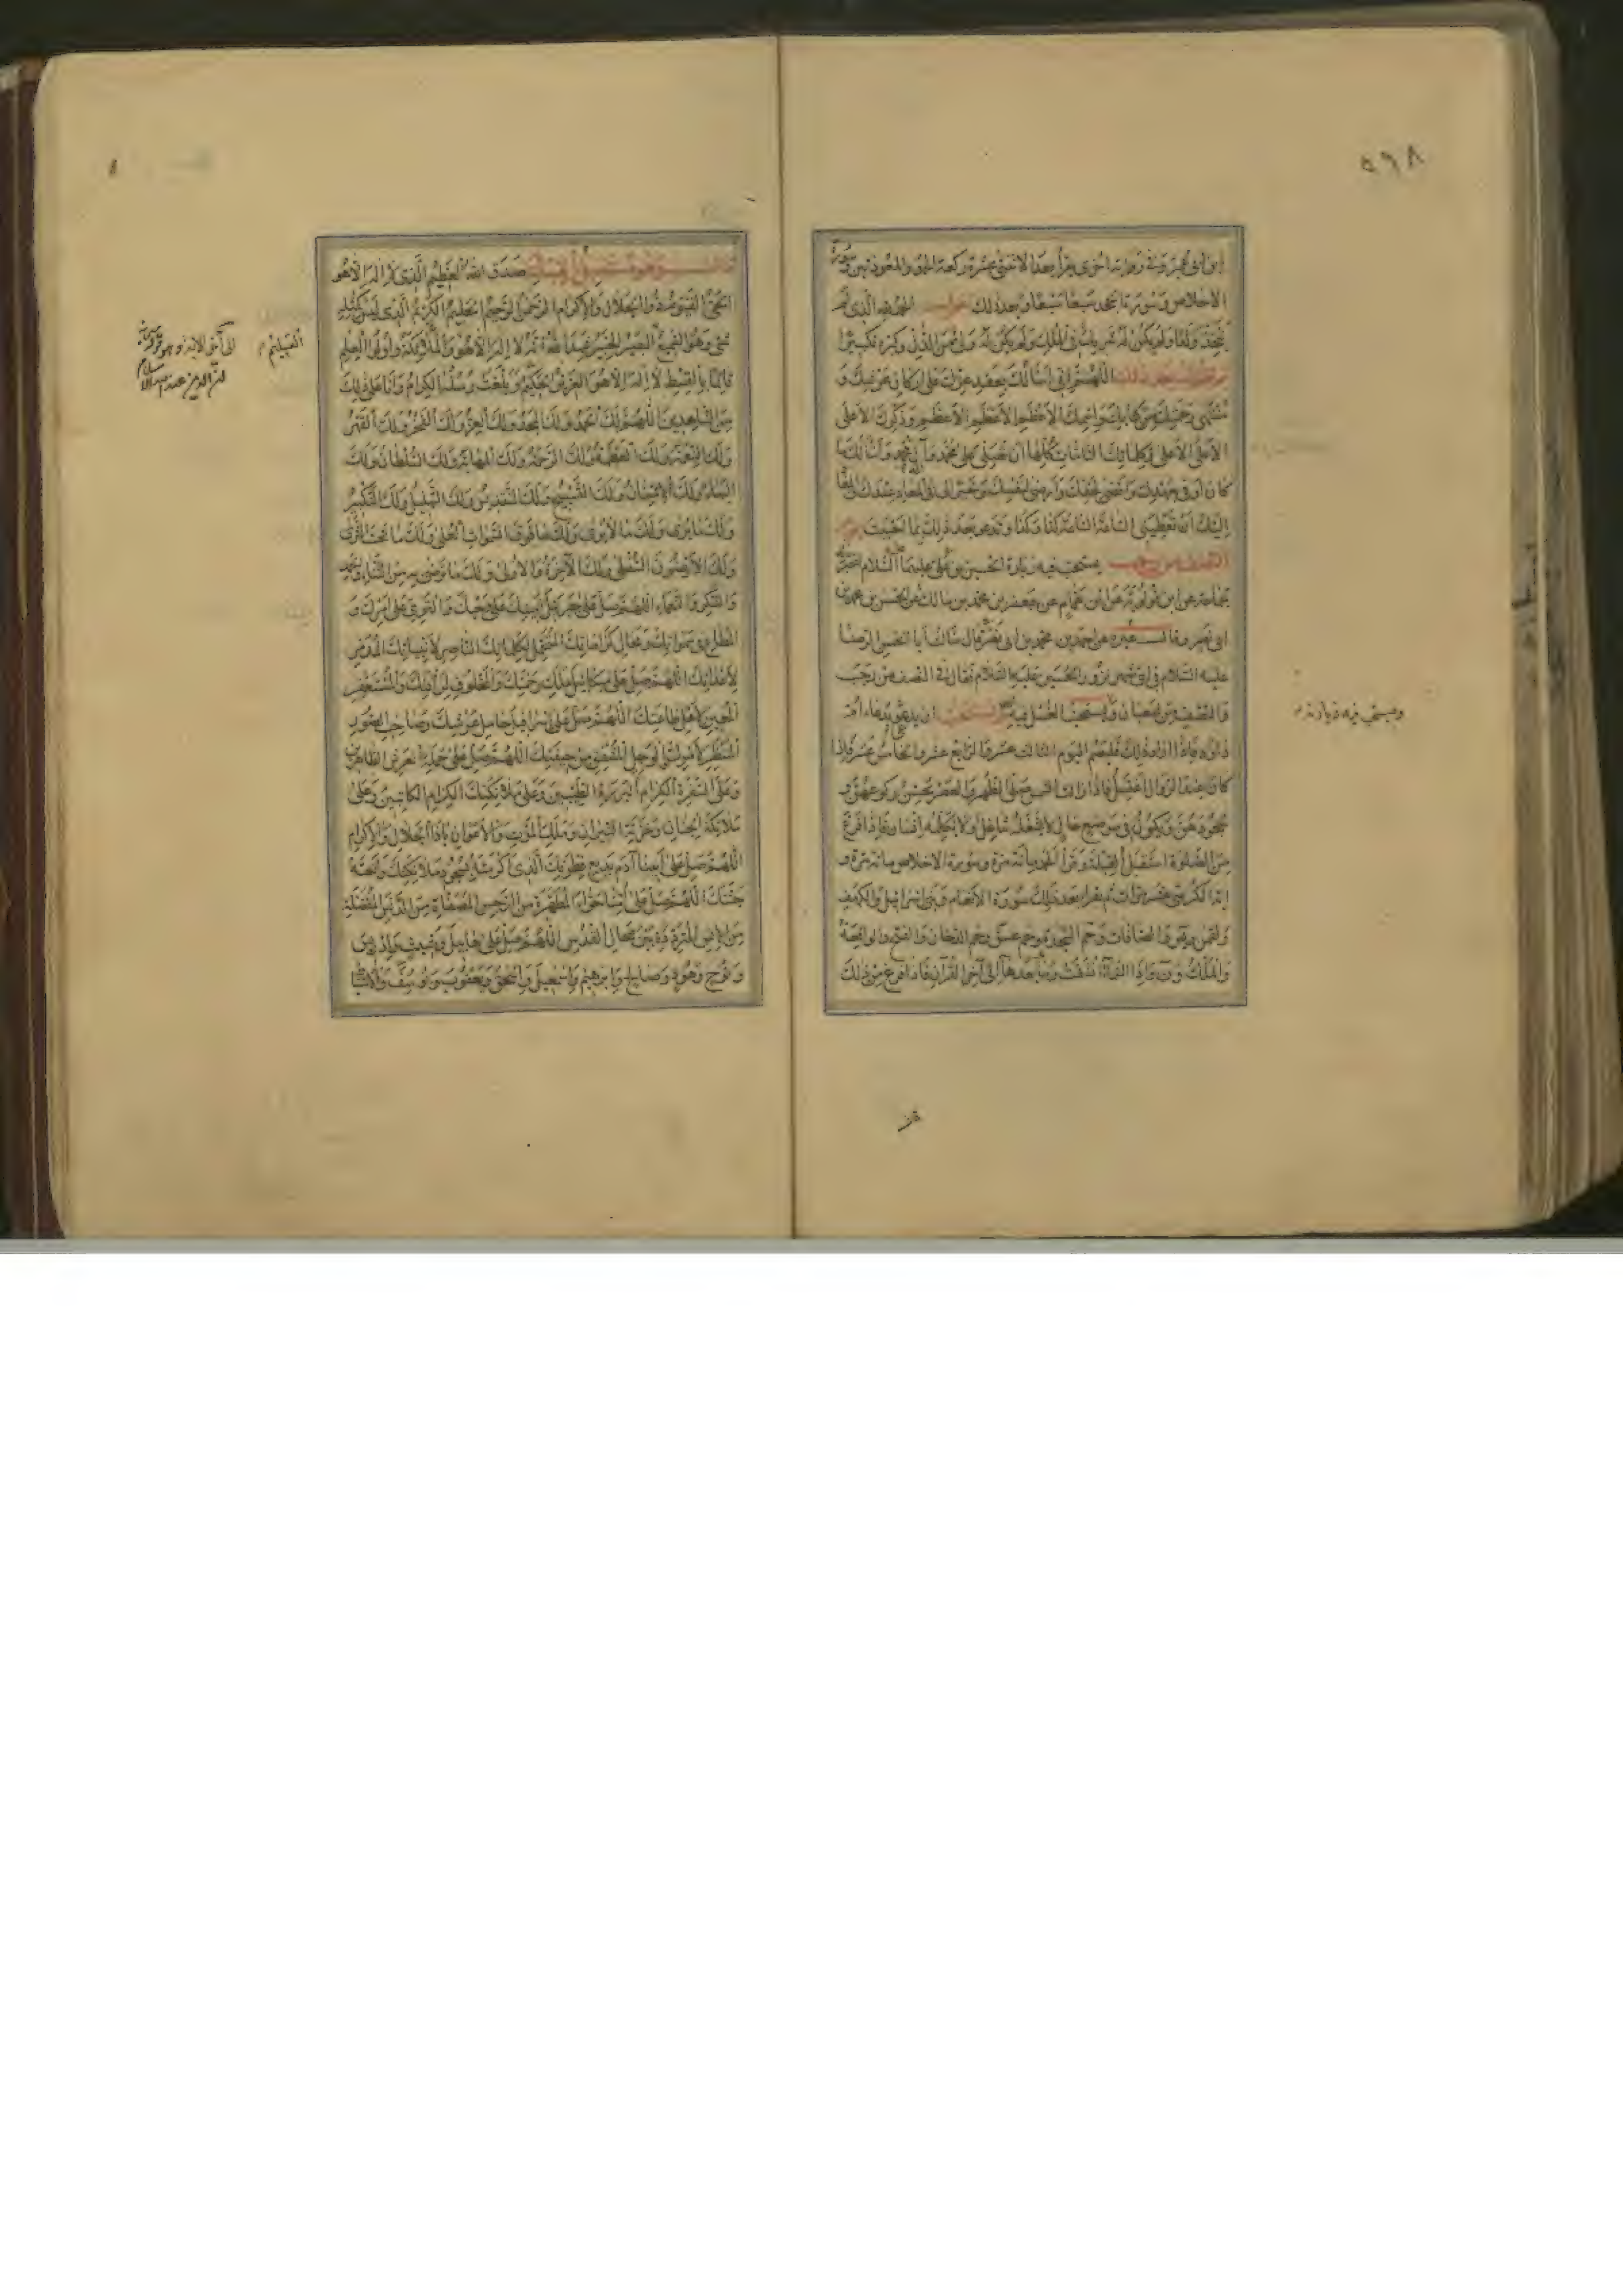 ٥٦٨
الاخلاص وسورة الجحد سبعا سبعا وبعد ذلك الحمد لله الذي لم
يتخذ ولدا ولم يكن له شريك في الملك ولم يكن له ولي من الذل وكبره تكبيرا
اللهم اني اسألك بمعقد عزك على اركان عرشك و
منتهى رحمتك من كتابك وباسمك الاعظم الاعظم الاعظم وذكرك الاعلى
الاعلى الاعلى وبكلماتك التامات كلها ان تصلي على محمد وآل محمد وأسألك ما
كان اوفى بعهدك واقضى لحقك وارضى لنفسك وخيرا لي في المعاد عندك
اليك ان تعطيني كذا وكذا وتدعو بعد ذلك بما احببت
النصف من رجب يستحب فيه زيارة الحسين بن علي عليهما السلام
جماعة عن ابن قولويه عن ابن همام عن جعفر بن محمد بن مالك عن الحسن بن محمد بن
ابي نصر قال سألت ابا الحسن الرضا
عليه السلام في اي شهر نزور الحسين عليه السلام فقال في النصف من رجب
والنصف من شعبان ويستحب الغسل فيه ويستحب ان يدعو بدعاء ام
داود فاذا اراد ذلك فليصم اليوم الثالث عشر والرابع عشر والخامس عشر فاذا
كان عند الزوال اغتسل فاذا زالت الشمس صلى الظهر والعصر يحسن ركوعهن و
سجودهن ويكون في موضع خال لا يشغله شاغل ولا يكلمه انسان فاذا فرغ
من الصلوة استقبل القبلة وقرأ الحمد مائة مرة وسورة الاخلاص مائة مرة و
آية الكرسي عشر مرات ثم يقرأ بعد ذلك سورة الانعام وبني اسرائيل والكهف
ولقمن ويس والصافات وحم السجدة وحم عسق وحم الدخان والفتح والواقعة
والملك ون واذا السماء انشقت وما بعدها الى آخر القرآن فاذا فرغ من ذلك
ويستحب فيه زيارته
قال وهو مستقبل القبلة صدق الله العظيم الذي لا اله الا هو
الحي القيوم ذو الجلال والاكرام الرحمن الرحيم الحليم الكريم الذي ليس كمثله
شئ وهو السميع البصير الخبير شهد الله انه لا اله الا هو والملائكة واولو العلم
قائما بالقسط لا اله الا هو العزيز الحكيم وبلغت رسله الكرام وانا على ذلك
من الشاهدين اللهم لك الحمد ولك المجد ولك العز ولك الفخر ولك القهر
ولك النعمة ولك العظمة ولك الرحمة ولك المهابة ولك السلطان ولك
البهاء ولك الامتنان ولك التسبيح ولك التقديس ولك التهليل ولك التكبير
ولك ما يرى ولك ما لا يرى ولك ما فوق السموات العلى ولك ما تحت الثرى
ولك الارضون السفلى ولك الآخرة والاولى ولك ما ترضى به من الثناء والحمد
والشكر والنعماء اللهم صل على جبرئيل امينك على وحيك والقوي على امرك و
المطاع في سمواتك ومحال كراماتك المتحمل لكلماتك الناصر لانبيائك المدمر
لاعدائك اللهم صل على ميكائيل ملك رحمتك والمخلوق لرأفتك والمستغفر
المعين لاهل طاعتك اللهم صل على اسرافيل حامل عرشك وصاحب الصور
المنتظر لامرك الوجل المشفق من خيفتك اللهم صل على حملة العرش الطاهرين
وعلى السفرة الكرام البررة الطيبين وعلى ملائكتك الكرام الكاتبين وعلى
ملائكة الجنان وخزنة النيران وملك الموت والاعوان يا ذا الجلال والاكرام
اللهم صل على ابينا آدم بديع فطرتك الذي كرمته بسجود ملائكتك وابحته
جنتك اللهم صل على امنا حواء المطهرة من الرجس المصفاة من الدنس المفضلة
من الانس المترددة بين محال القدس اللهم صل على هابيل وشيث وادريس
ونوح وهود وصالح وابرهيم واسمعيل واسحق ويعقوب ويوسف والاسباط